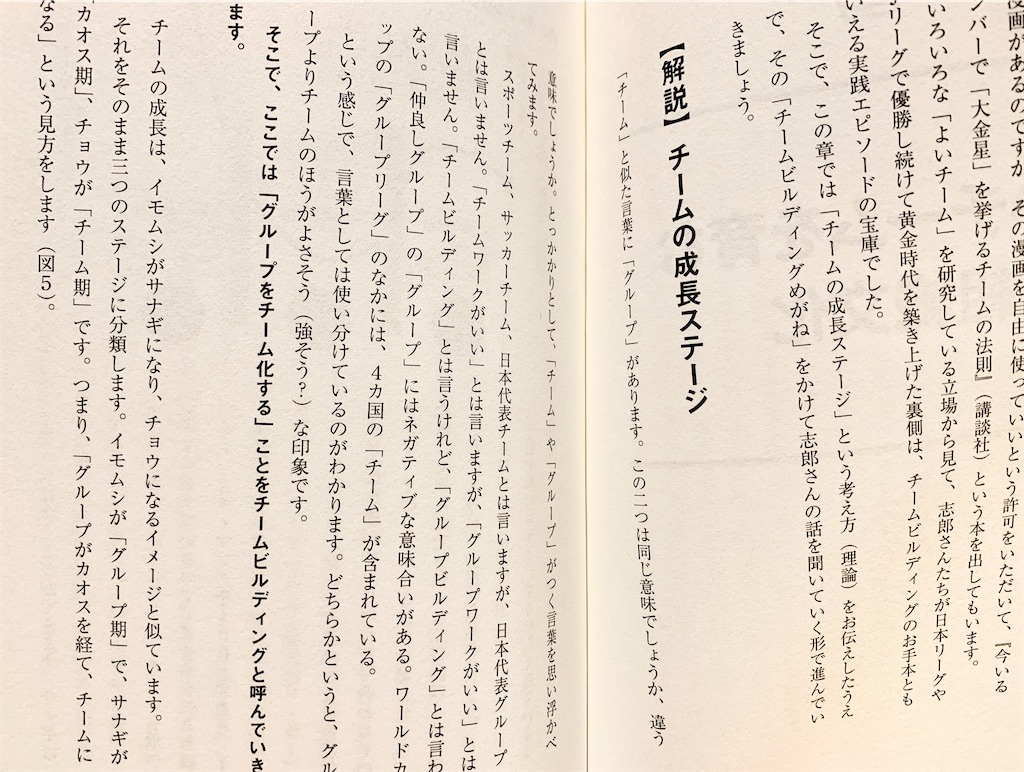 漫画があるのですが、その漫画を自由に使っていいという許可をいただいて、『今いる
ンバーで「大金星」を挙げるチームの法則』（講談社）という本を出してもいます。
いろいろな「よいチーム」を研究している立場から見て、志郎さんたちが日本リーグや
リーグで優勝し続けて黄金時代を築き上げた裏側は、チームビルディングのお手本とも
いえる実践エピソードの宝庫でした。
そこで、この章では「チームの成長ステージ」という考え方（理論）をお伝えしたうえ
で、その「チームビルディングめがね」をかけて志郎さんの話を聞いていく形で進んでい
きましょう。
【解説】チームの成長ステージ
「チーム」と似た言葉に「グループ」があります。この二つは同じ意味でしょうか、違う
意味でしょうか。とっかかりとして、「チーム」や「グループ」がつく言葉を思い浮かべ
てみます。
スポーツチーム、サッカーチーム、日本代表チームとは言いますが、日本代表グループ
とは言いません。「チームワークがいい」とは言いますが、「グループワークがいい」とは
言いません。「チームビルディング」とは言うけれど、「グループビルディング」とは言わ
ない。「仲良しグループ」の「グループ」にはネガティブな意味合いがある。ワールドカ
ップの「グループリーグ」のなかには、4カ国の「チーム」が含まれている。
という感じで、言葉としては使い分けているのがわかります。どちらかというと、グル
ープよりチームのほうがよさそう（強そう？）な印象です。
そこで、ここでは「グループをチーム化する」ことをチームビルディングと呼んでいき
ます。
チームの成長は、イモムシがサナギになり、チョウになるイメージと似ています。
それをそのまま三つのステージに分類します。イモムシが「グループ期」で、サナギが
「カオス期」、チョウが「チーム期」です。つまり、「グループがカオスを経て、チームに
なる」という見方をします（図5）。